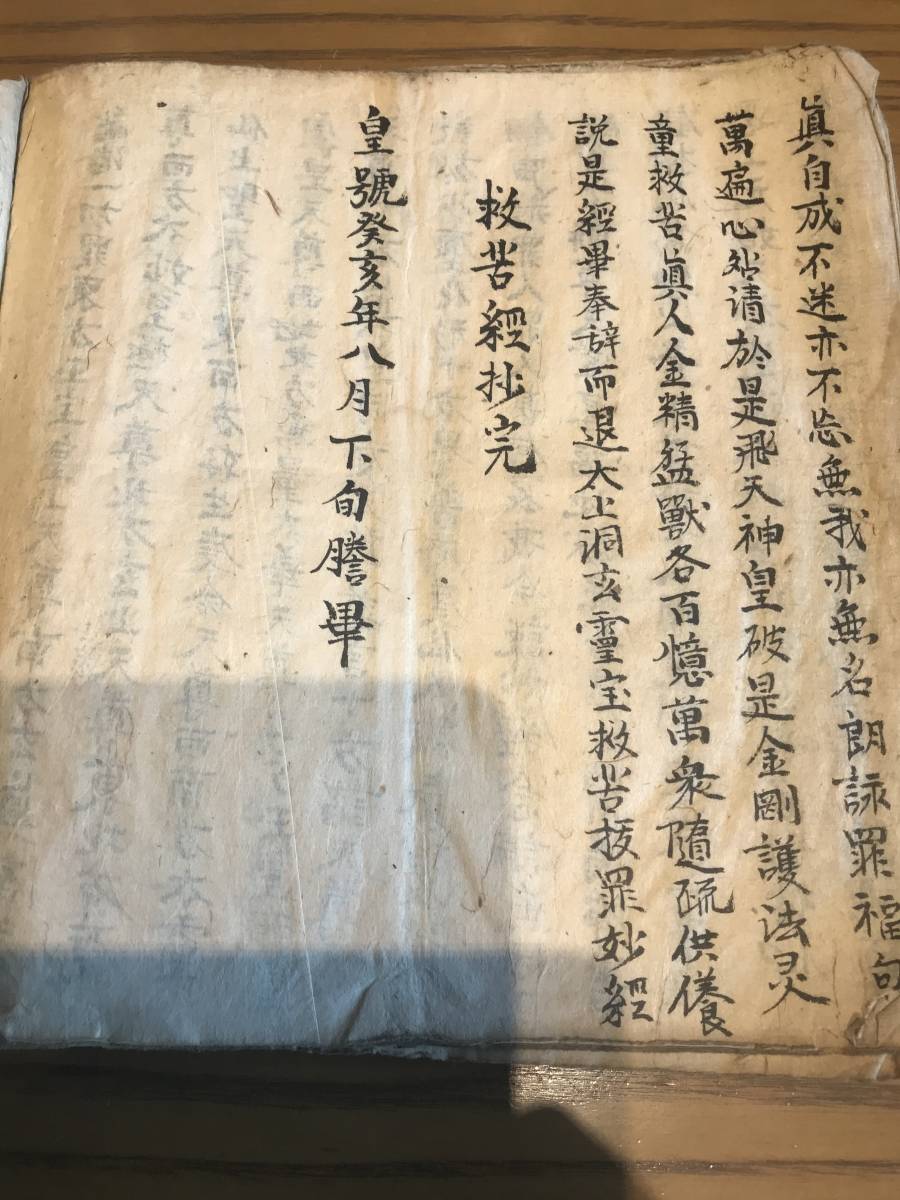 眞自成不迷亦不忘無我亦無名朗詠罪福句
萬遍心垢清於是飛天神皇破是金剛護法灵
童救苦眞人金精猛獸各百憶萬衆隨硫供養
説是經畢奉辞而退太上洞玄靈宝救苦拔罪妙經
救苦經抄完
皇號癸亥年八月下旬謄畢